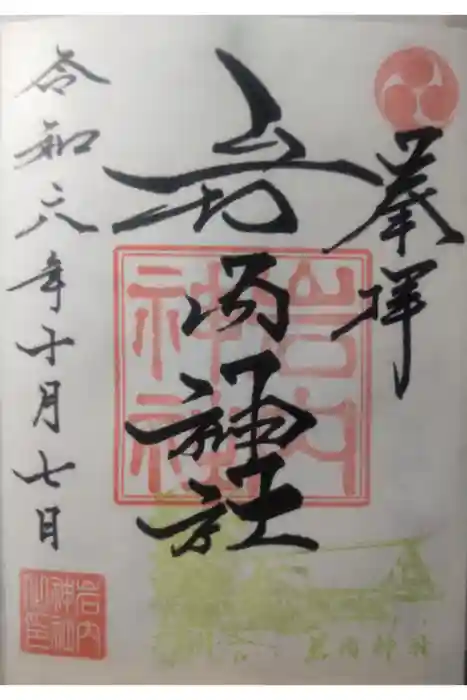 奉拝
岩内神社
令和六年十月七日
岩内
神社
岩内
神社
岩内神社